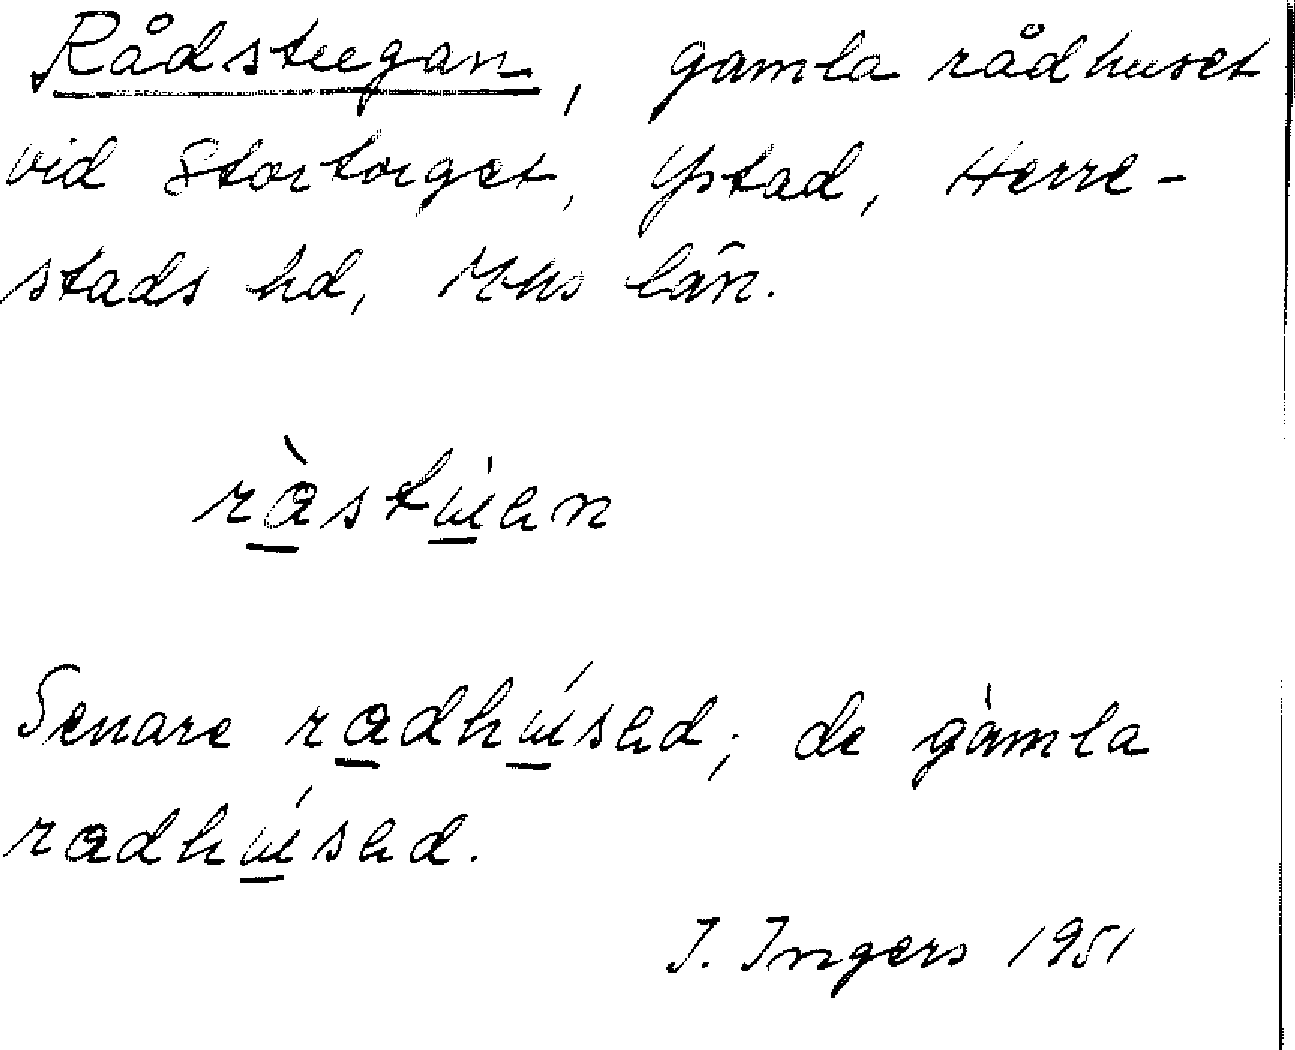 Rådstuegan, gamla rådhuset
vid Stortorget, Ystad, Herre-
stads hd, Mhs län.
ràstu̇en
Senare radhúsed; de gàmla
radhúsed.
I. Ingers 1951